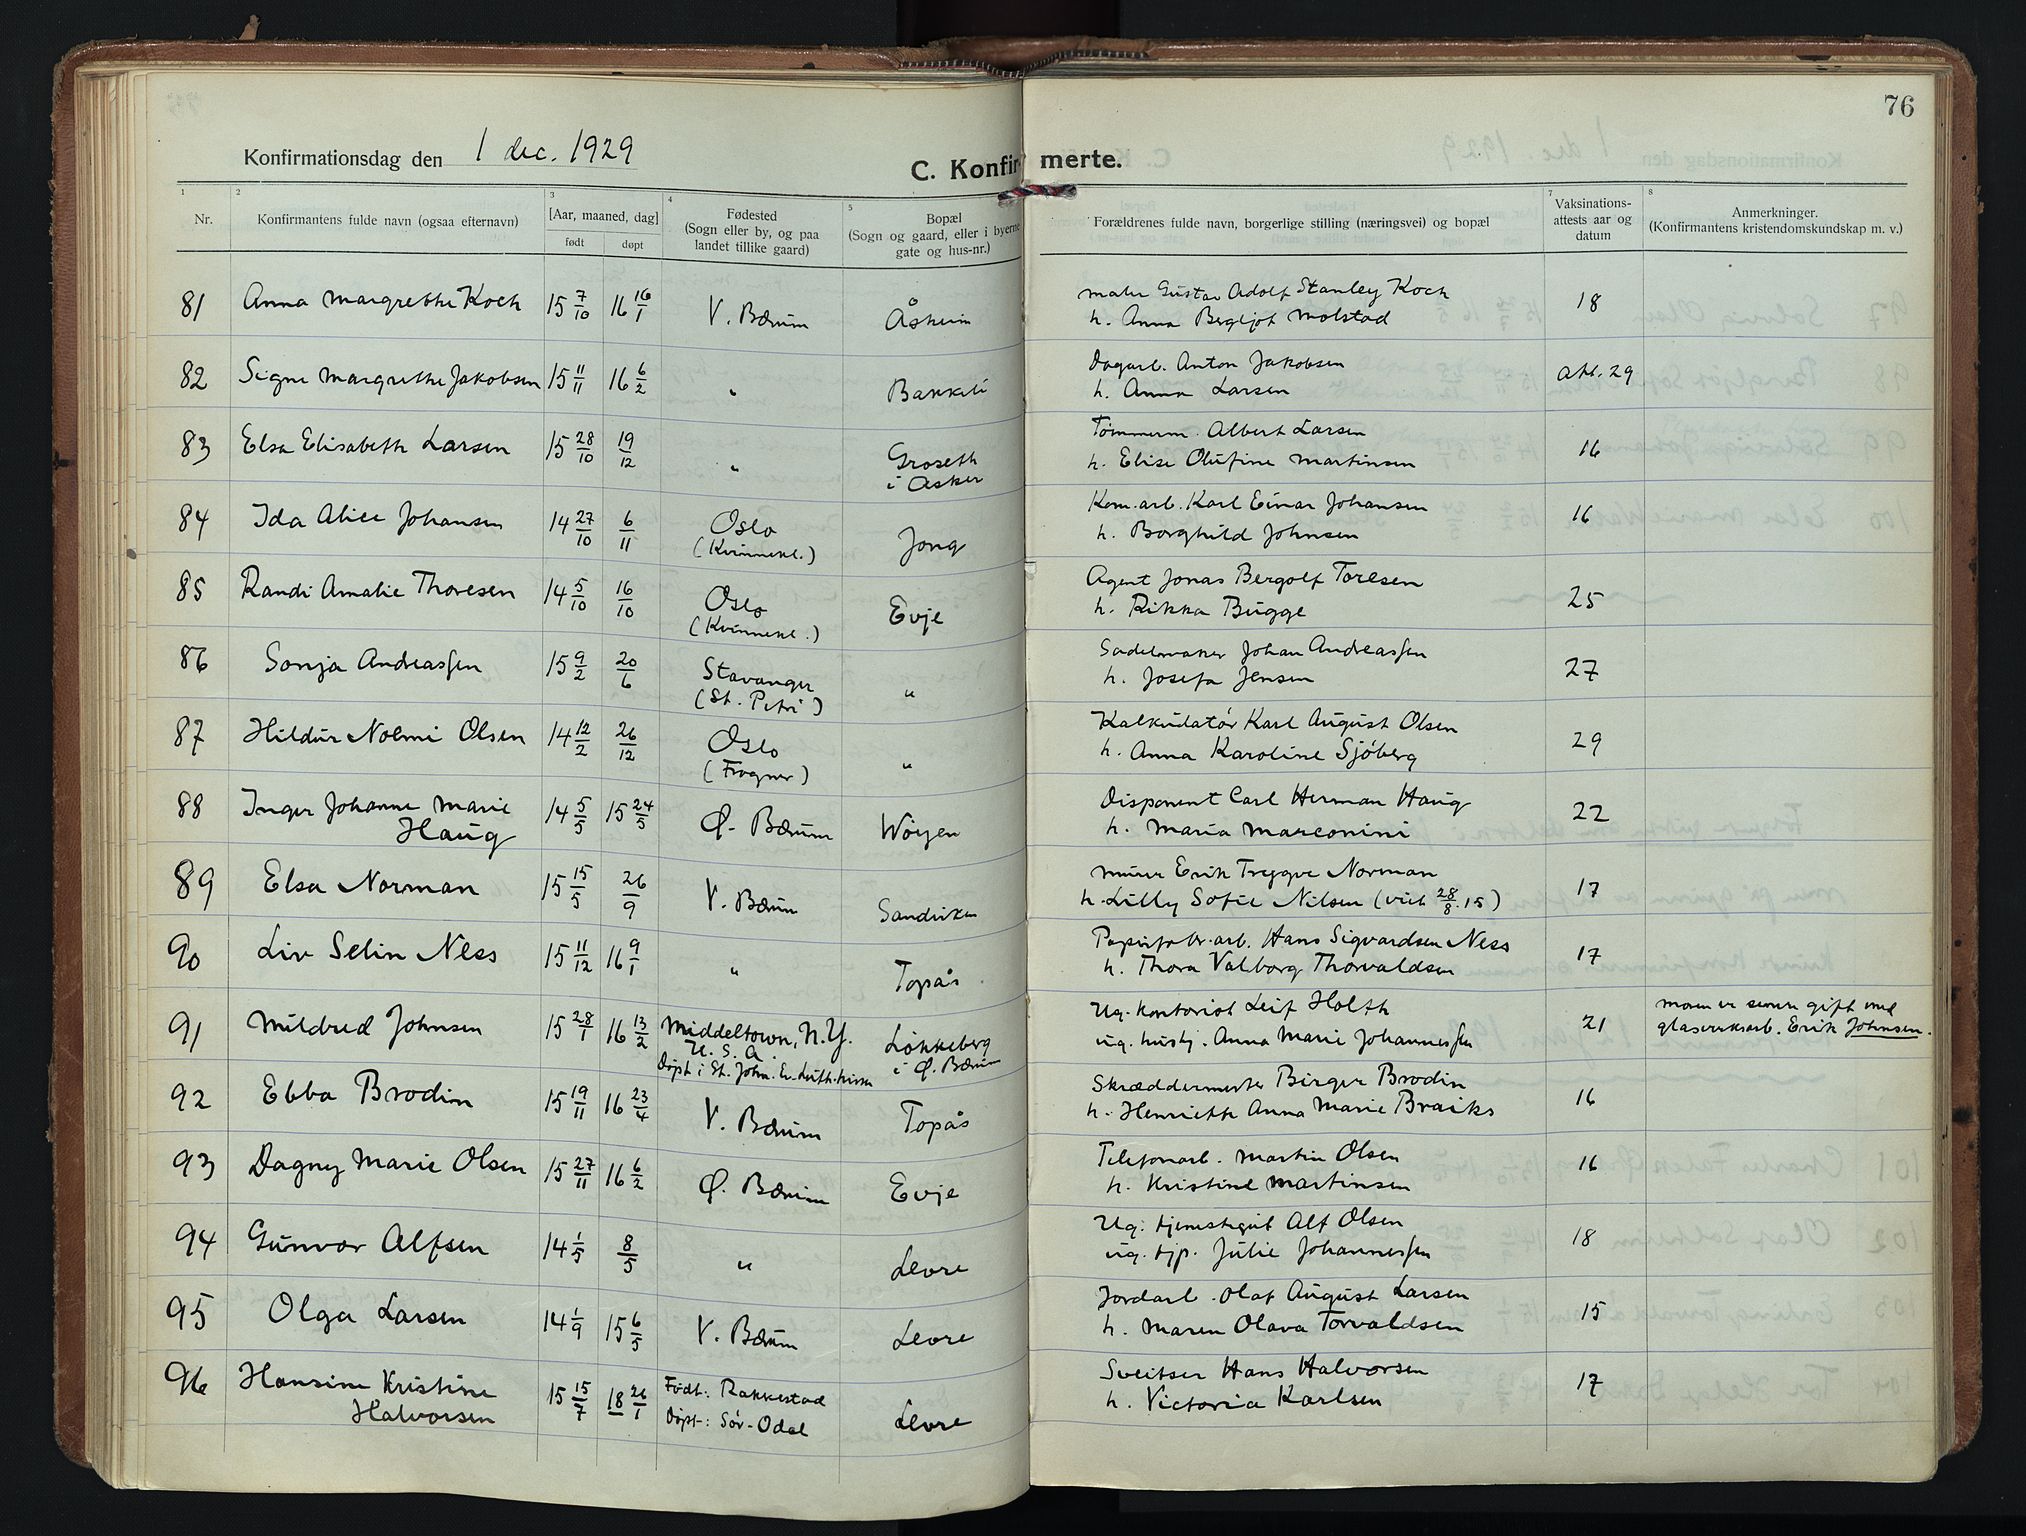 76
Konfirmationsdag den 1 dec. 1929
C. Konfirmerte.
1 2 3 4 5 7 8
Nr. Konfirmantens fulde navn (ogsaa efternavn) [Aar, maaned, dag] født døpt Fødested (Sogn eller by, og paa landet tillike gaard) Bopæl (Sogn og gaard, eller i byerne gate og hus-nr.) Forældrenes fulde navn, borgerlige stilling (næringsvei) og bopæl Vaksinations-attests aar og datum Anmerkninger. (Konfirmantens kristendomskundskap m. v.)
81 Anna Margrethe Koch 15 7/10 16 16/1 V. Bærum Åsheim Maler Gustav Adolf Stanley Koch 18
h. Anna Bergljot Molstad
82 Signe Margrethe Jakobsen 15 11/11 16 6/2 " Bakkeli Dagarb. Anton Jakobsen att. 29
h. Anna Larsen
83 Elsa Elisabeth Larsen 15 28/10 19/12 " Groseth Tømmerm. Albert Larsen 16
i Asker h. Elise Olufine Martinsen
84 Ida Alice Johansen 14 27/10 6/11 Oslo Jong Kom.arb. Karl Einar Johansen 16
(Kvinnekl.) h. Borghild Johnsen
85 Randi Amalie Thoresen 14 5/10 16/10 Oslo Evje Agent Jonas Bergolf Toresen 25
(Kvinnekl.) h. Rikka Bugge
86 Sonja Andreassen 15 9/2 20/6 Stavanger " Sadelmaker Johan Andreassen 27
(St. Petri) h. Josefa Jensen
87 Hildur Noemi Olsen 14 12/2 26/12 Oslo " Kalkulatør Karl August Olsen 29
(Frogner) h. Anna Karoline Sjöberg
88 Inger Johanne Marie 14 5/5 15 24/5 Ø. Bærum Wøyen Disponent Carl Herman Haug 22
Haug h. Maria Marconini
89 Elsa Norman 15 15/5 26/9 V. Bærum Sandviken Murer Erik Tryggve Norman 17
h. Lilly Sofie Nilsen (viet 28/8.15)
90 Liv Selin Ness 15 11/12 16 9/1 " Topås Papirfabr.arb. Hans Sigvardsen Ness 17
h. Thora Valborg Thorvaldsen
91 Mildred Johnsen 15 28/1 16 13/2 Middeltown, N.Y. Løkkeberg Ug. kontorist Leif Holth 21 moren er senere gift med
U.S.A. i Ø. Bærum ug. hushj. Anna Marie Johannessen glasverksarb. Erik Johnsen.
Døpt i St. Joh. Ev. Luth. kirke
92 Ebba Brodin 15 19/11 16 23/4 V. Bærum Topås Skræddermester Birger Brodin 16
h. Henriette Anna Marie Braiks
93 Dagny Marie Olsen 15 27/11 16 6/2 Ø. Bærum Evje Telefonarb. Martin Olsen 16
h. Kristine Martinsen
94 Gunvor Alfsen 14 1/5 8/5 " Levre Ug. tjenestegut Alf Olsen 18
ug. tjp. Julie Johannessen
95 Olga Larsen 14 1/9 15 6/5 V. Bærum Levre Jordarb. Olaf August Larsen 15
h. Maren Olava Torvaldsen
96 Hansine Kristine 15 15/7 18 26/1 Født: Rakkestad Levre Sveitser Hans Halvorsen 17
Halvorsen Døpt: Sør-Odal h. Victoria Karlsen